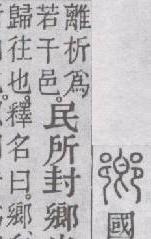 鄉國
離析爲
若干邑。民所封鄉
歸往也。釋名曰。鄉